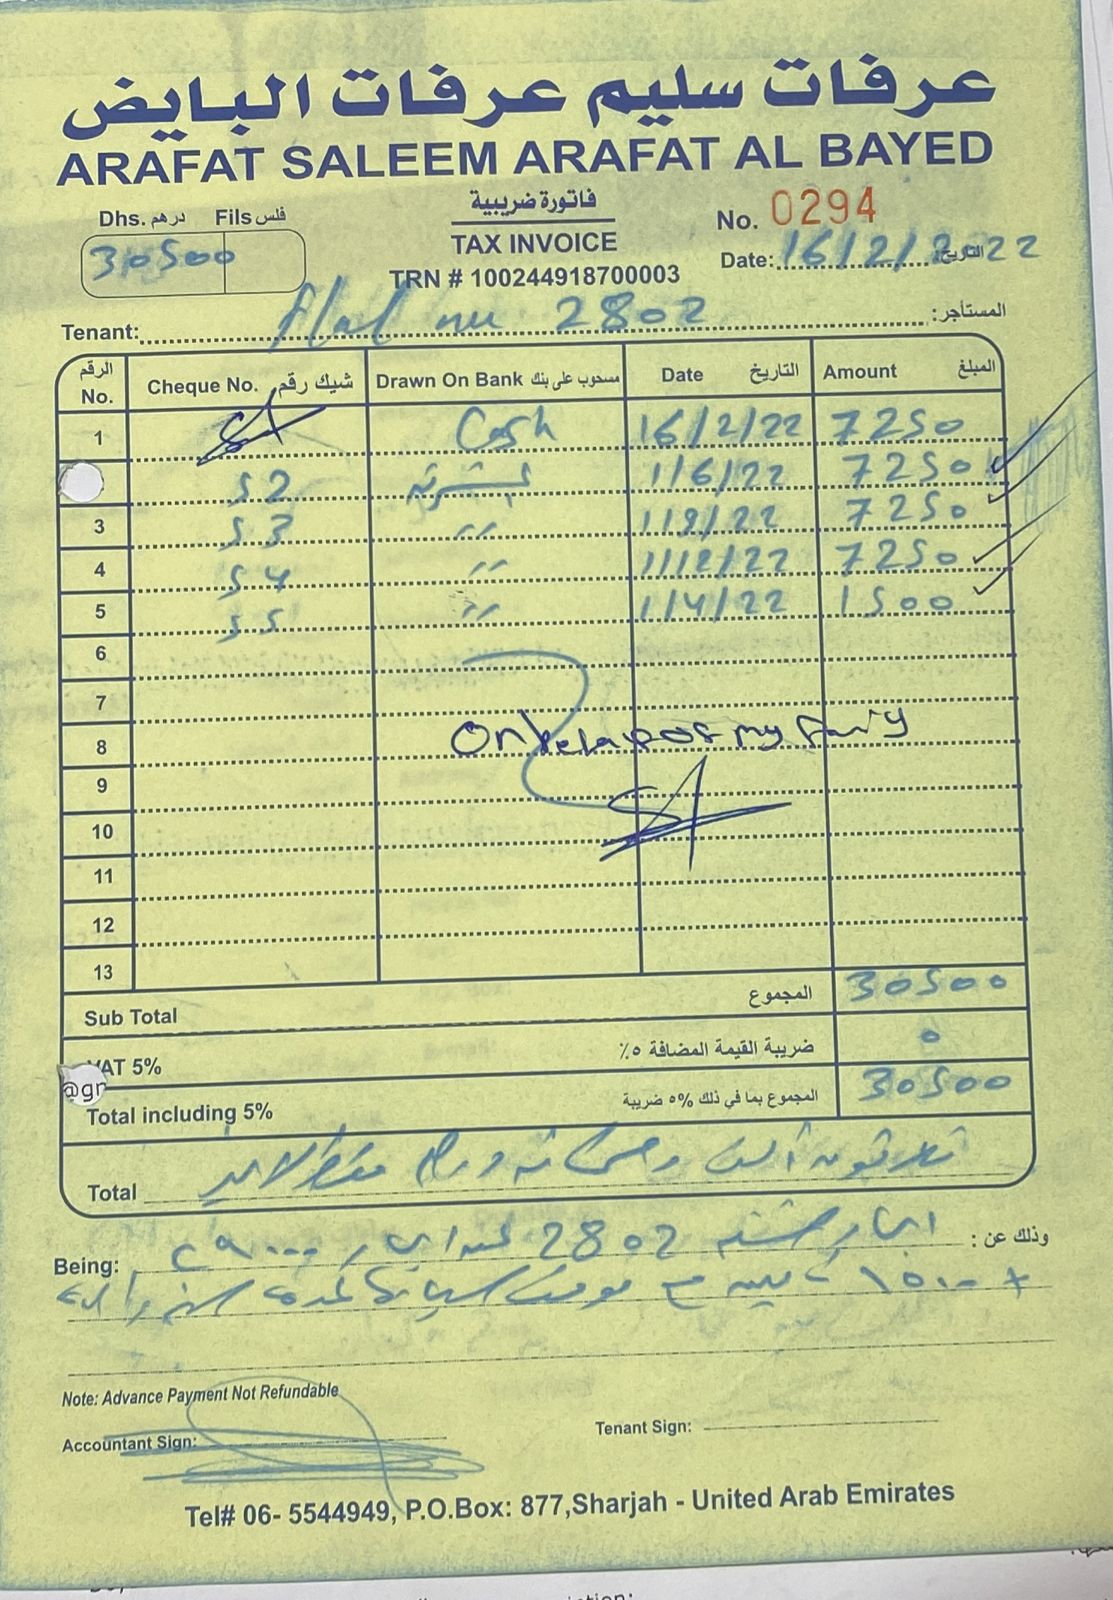 عرفات سليم عرفات البايض
ARAFAT SALEEM ARAFAT AL BAYED
Dhs. درهم Fils فلس
30500
فاتورة ضريبية
TAX INVOICE
TRN # 100244918700003
No. 0294
Date: 16/2/2022 التاريخ:
Tenant: flat no 2802 المستأجر:
الرقم No. Cheque No. شيك رقم Drawn On Bank مسحوب على بنك Date التاريخ Amount المبلغ
1 Cash 16/2/22 7250
52 1/6/22 7250
3 53 '' 1/9/22 7250
4 54 '' 1/12/22 7250
5 55 '' 1/4/22 1500
6
7
8 my
9
10
11
12
13
Sub Total المجموع 30500
VAT 5% ضريبة القيمة المضافة ٥٪ 0
@gr
Total including 5% المجموع بما في ذلك ٥% ضريبة 30500
Total ثلاثون ألف وخمسمائة درهم فقط لا غير
Being: ايجار شقة 2802 ايجار ٢٩٠٠٠ وذلك عن :
+ ١٥٠٠ تأمين مع
Note: Advance Payment Not Refundable
Accountant Sign:
Tenant Sign:
Tel# 06- 5544949, P.O.Box: 877,Sharjah - United Arab Emirates